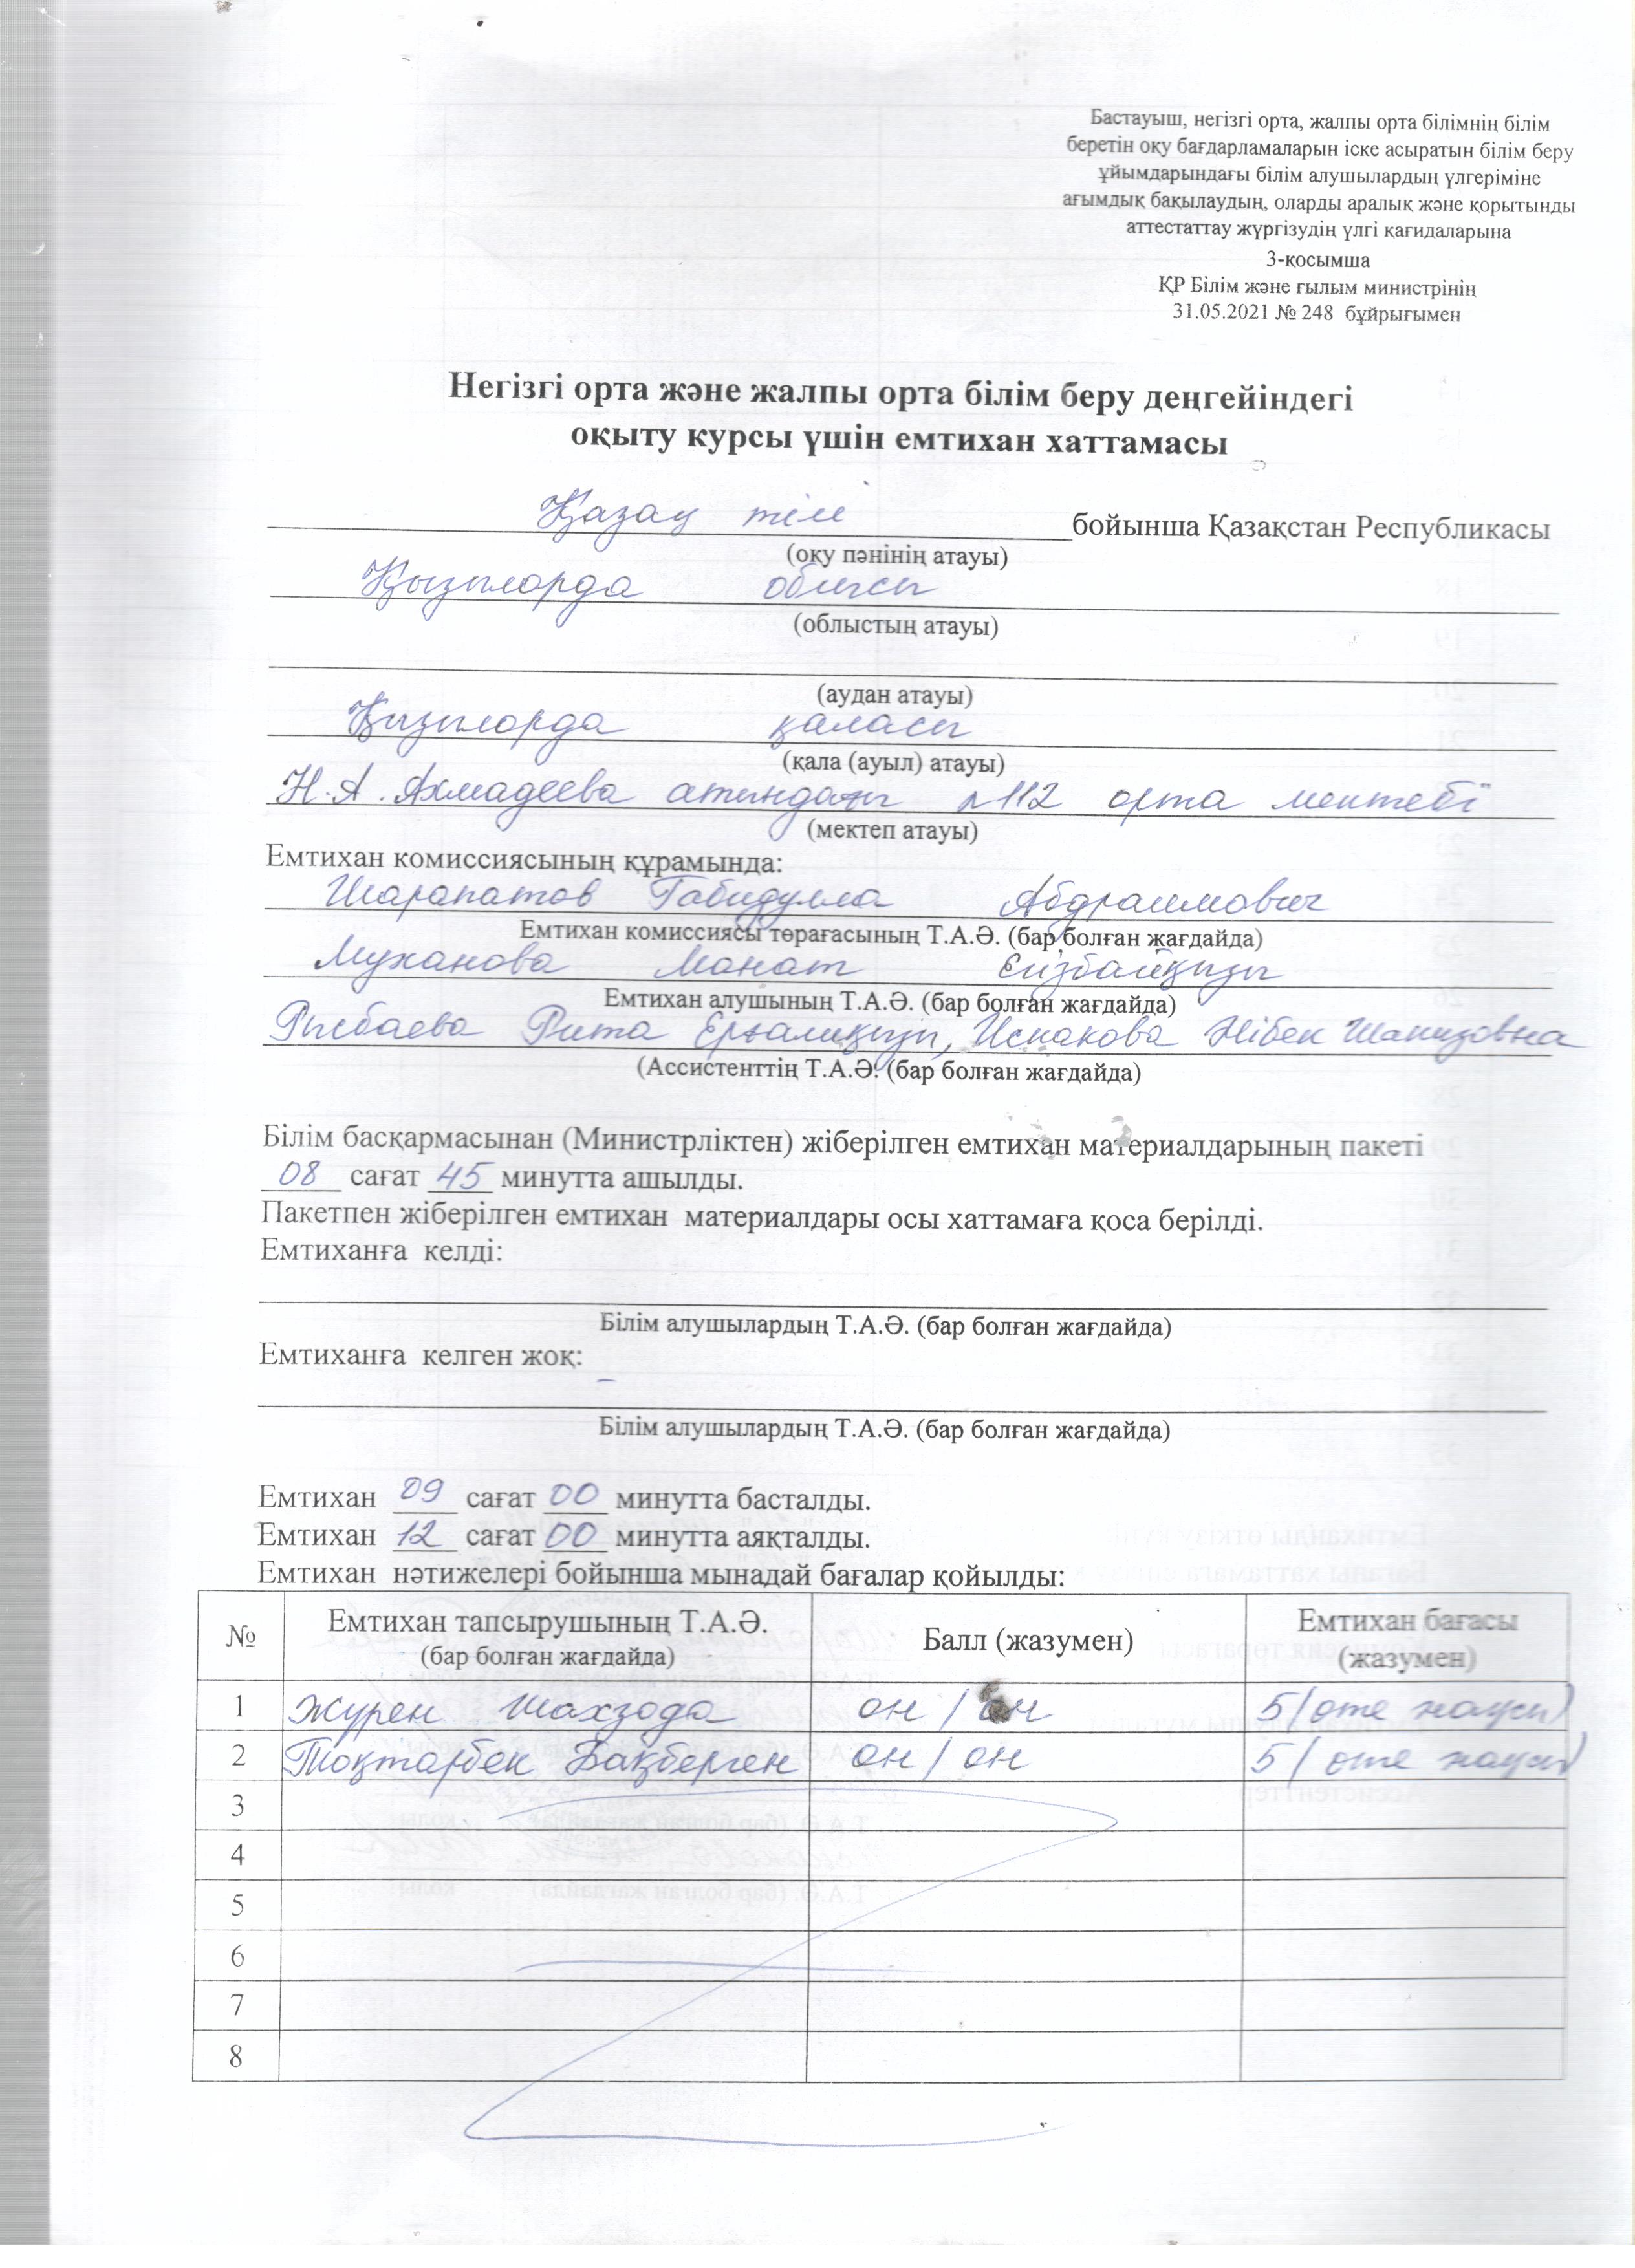 Бастауыш, негізгі орта, жалпы орта білімнің білім
беретін оқу бағдарламаларын іске асыратын білім беру
ұйымдарындағы білім алушылардың үлгеріміне
ағымдық бақылаудың, оларды аралық және қорытынды
аттестаттау жүргізудің үлгі қағидаларына
3-қосымша
ҚР Білім және ғылым министрінің
31.05.2021 № 248 бұйрығымен
Негізгі орта және жалпы орта білім беру деңгейіндегі
оқыту курсы үшін емтихан хаттамасы
Қазақ тілі бойынша Қазақстан Республикасы
(оқу пәнінің атауы)
Қызылорда облысы
(облыстың атауы)
(аудан атауы)
Қызылорда қаласы
(қала (ауыл) атауы)
Н.А. Ахмадеева атындағы №112 орта мектебі
(мектеп атауы)
Емтихан комиссиясының құрамында:
Шарапатов Габидулла Абдраимович
Емтихан комиссиясы төрағасының Т.А.Ә. (бар болған жағдайда)
Муханова Манат
Емтихан алушының Т.А.Ә. (бар болған жағдайда)
Рысбаева Рита Ерғалиқызы, Испакова Жібек Шапизовна
(Ассистенттің Т.А.Ә. (бар болған жағдайда)
Білім басқармасынан (Министрліктен) жіберілген емтихан материалдарының пакеті
08 сағат 45 минутта ашылды.
Пакетпен жіберілген емтихан материалдары осы хаттамаға қоса берілді.
Емтиханға келді:
Білім алушылардың Т.А.Ә. (бар болған жағдайда)
Емтиханға келген жоқ:
–
Білім алушылардың Т.А.Ә. (бар болған жағдайда)
Емтихан 09 сағат 00 минутта басталды.
Емтихан 12 сағат 00 минутта аяқталды.
Емтихан нәтижелері бойынша мынадай бағалар қойылды:
№ Емтихан тапсырушының Т.А.Ә. (бар болған жағдайда) Балл (жазумен) Емтихан бағасы (жазумен)
1 Журен Шахзода он / он 5 (өте жақсы)
2 Тоқтарбек Бақберген он / он 5 (өте жақсы)
3
4
5
6
7
8